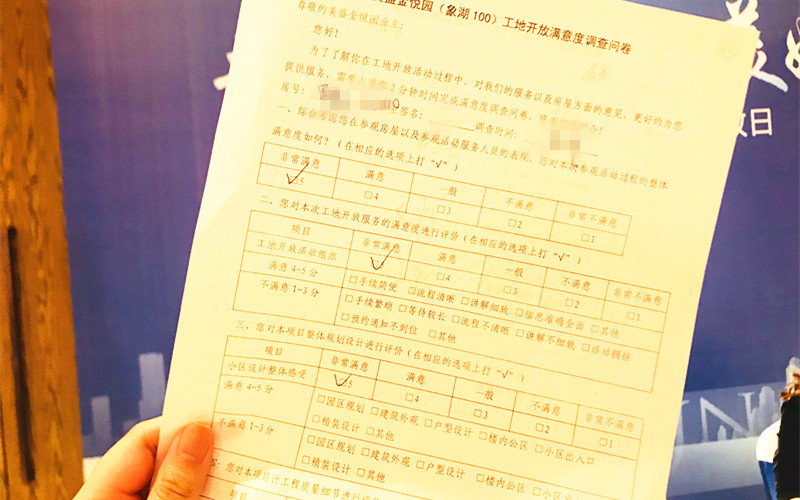 美盛金悦园（象湖100）工地开放满意度调查问卷
尊敬的美盛金悦园业主：
您好！
为了了解你在工地开放活动过程中，对我们的服务以及房屋方面的意见，更好的为您
提供服务，需要占用您2分钟时间完成满意度调查问卷，感谢您的配合！
房号： 业主签名： 调查时间：
一、综合考虑您在参观房屋以及参观活动服务人员的表现，您对本次参观活动过程的整体
满意度如何？（在相应的选项上打“√”）
非常满意 满意 一般 不满意 非常不满意
□5 □4 □3 □2 □1
二、您对本次工地开放服务的满意度进行评价（在相应的选项上打“√”）
项目 非常满意 满意 一般 不满意 非常不满意
工地开放活动组织 □4 □3 □2 □1
满意 4-5分 □手续简便 □流程清晰 □讲解细致 □信息准确全面 □其他
不满意 1-3分 □手续繁琐 □等待较长 □流程不清晰 □讲解不细致 □活动拥挤
□预约通知不到位 □其他
三、您对本项目整体规划设计进行评价（在相应的选项上打“√”）
项目 非常满意 满意 一般 不满意 非常不满意
小区设计整体感受 □5 □4 □3 □2 □1
满意 4-5分 □园区规划 □建筑外观 □户型设计 □楼内公区 □小区出入口
□精装设计 □其他
不满意 1-3分 □园区规划 □建筑外观 □户型设计 □楼内公区 □小区出入口
□精装设计 □其他
您对本项目计工程质量细节进行评
项目
放日